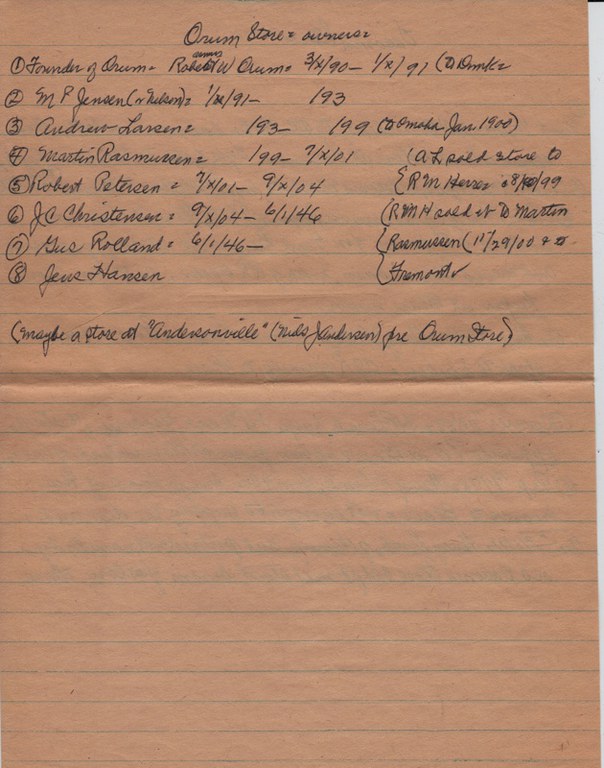 Orum Store = owners =
① Founder of Orum = Robert W Orum = 3/X/90 - 1/X/91 (To Dmk =
② M P Jensen (or Nelson) = 1/X/91 - 193
③ Andrew Larsen = 193 - 199 (to Omaha Jan. 1900)
④ Martin Rasmussen = 199 - 7/X/01 (A L sold store to
⑤ Robert Petersen = 7/X/01 - 9/X/04 { R M Herre 99
⑥ J C Christensen = 9/X/04 - 6/1/46 (R M H sold it to Martin
⑦ Gus Rolland = 6/1/46 - (Rasmussen (11/29/00 & to
⑧ Jens Hansen {Fremont
(maybe a store at "Andersonville" (Niels J Andersen) pre Orum Store)